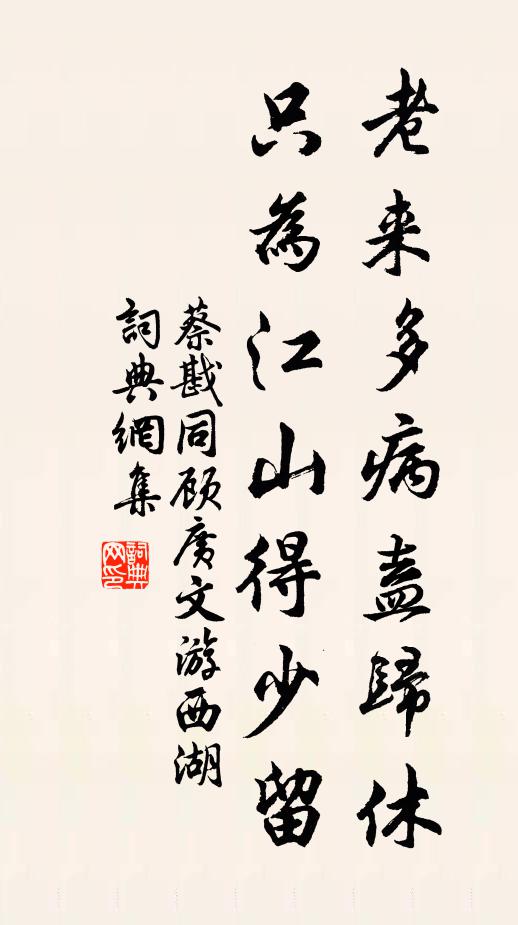 老来多病盍歸休
只為江山得少留
蔡戡同顾廣文游西湖
詞典網集
詞典网印